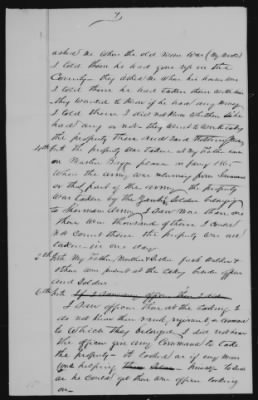 7
asked me when the old man was (My Uncle)
I told them he had gone up in the
County - they asked me when his house was
I told them he had taken them with him
They wanted to know if he had any money
I told them I did not know whether he
had any or not they went to work taking
the property then and said nothing more
4th Int the property was taken at My Father home
on Martin place in Jany 1865
When the army was returning from Savannah
or this part of the army the property
was taken by the Yankee Soldiers belonging
to Sherman Army I saw more than one
there was thousands of them I could
not count them the property was all
taken in one day
5th Int My Father, Mother & Sister and
others was present at the taking beside officers
and Soldiers
6th Int
I saw officers there at the taking I
do not know their rank, regiment or command
to which they belonged I did not hear
the officer give any Command to take
the property - it looked as if every man
was helping himself to
as he could get there was officers looking
on -